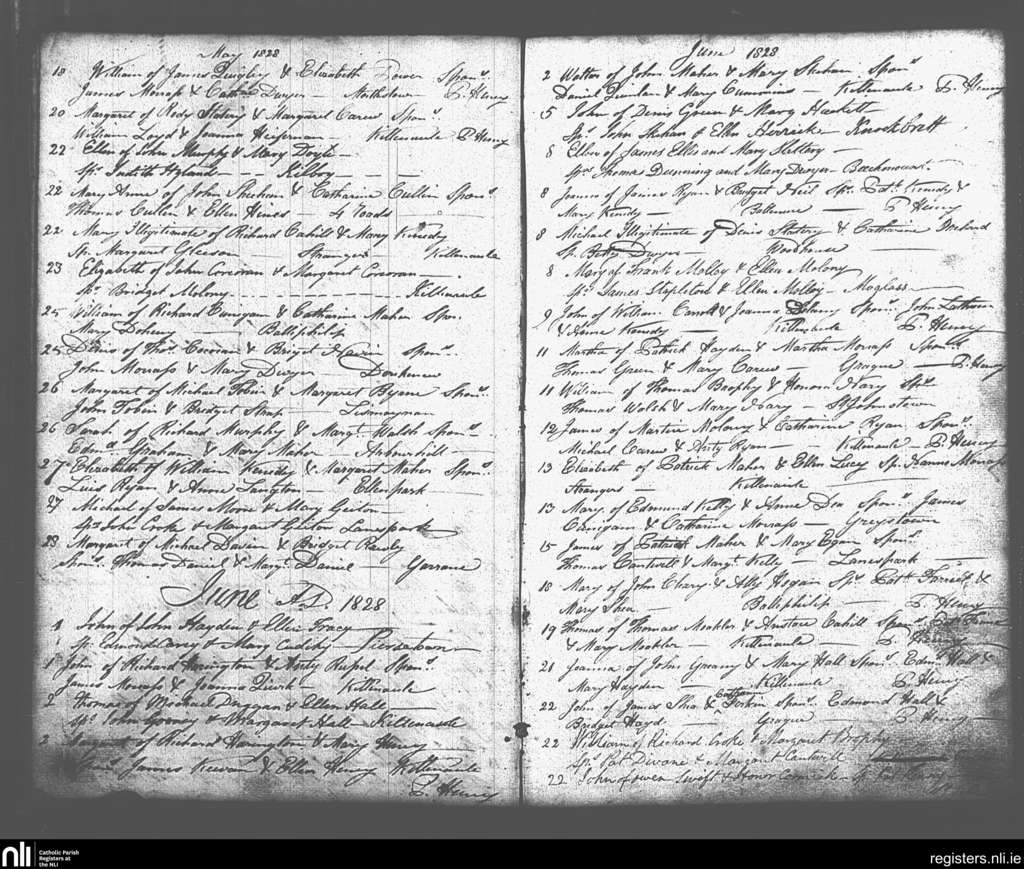 May 1828
18 William of James Quigley & Elizabeth Power Spon.rs
James Morass & Dwyer — Northstown P. Henry
20 Margaret of Rody Slatery & Margaret Carew Spon.rs
William Loyd & Joanna Heffernan — Killenaule P. Henry
22 Ellen of John Murphy & Mary Doyle —
Sp. Judith Hyland — Kilboy —
22 Mary Anne of John Shehan & Catharine Cullin Spon.rs
Thomas Cullen & Ellen Henes — 4 Roads
22 Mary Illigitimate of Richard Cahill & Mary Kenedy
Sp. Margaret Gleeson — Strangers — Killenaule
23 Elizabeth of John Corcoran & Margaret Corcoran —
Sp. Bridget Molony — Killinaule
25 William of Richard & Catharine Maher Spon.
Mary Doheny — Balliphilip
25 Denis of Thos. Corcoran & Bridget Spon.
John Morass & Mary Dwyer —
26 Margaret of Michael Tobin & Margaret Byrne Spon.rs
John Tobin & Bridget — Lismoynan
26 Sarah of Richard Murphy & Margt. Walsh Spon.rs
Edmd. Graham & Mary Maher — Arbourhill —
27 Elizabeth of William Kenedy & Margaret Maher Spon.rs
Ryan & Anne Langton — Ellenpark
27 Michael of James Moore & Mary —
Sp. John Cooke & Margaret Lanespark
28 Margaret of Michael Davin & Bridget
Spon. Thomas Daniel & Margt. Daniel — Garrane
June A.D. 1828
1 John of John Hayden & Ellen Tracy
Sp. Edmond & Mary —
1 John of Richard Harington & Spon.rs
James Morass & Joanna Quirk — Killinaule
2 Thomas of Michael Duggan & Ellen Hall —
Sp. John & Margaret Hall — Killenaule
2 Margaret of Richard Harington & Mary Henry
James & Ellen Henry Killenaule
P. Henry
June 1828
2 Walter of John Maher & Mary Shehan Spon.rs
Daniel Quinlan & Mary Cummins — Killenaule P. Henry
5 John of Denis Green & Mary Hackett
Sp. John Shehan & Ellen — Knockbrett
8 Ellen of James Ellis and Mary Slattery —
Sp. Thomas Dunning and Mary Dwyer — Beechmount
8 Joanna of James Ryan & Bridget Neil Sp. Patk. Kenedy &
Mary Kenedy — — P. Henry
8 Michael Illigitimate of Denis Slatery & Catharine
Sp. Betty Dwyer — Woodhouse
8 Mary of Frank Molloy & Ellen Molony
Sp. James Stapleton & Ellen Molloy — Moglass
9 John of William Carroll & Joanna Spon.rs John
& Anne Kenedy — Killenaule P. Henry
11 Martha of Patrick Hayden & Martha Morass Spon.rs
Thomas Green & Mary Carew — Graigue — P. Henry
11 William of Thomas Brophy & Honora Spon.
Thomas Walsh & Mary — St. Johnstown
12 James of Martin Molony & Catharine Ryan Spon.rs
Michael Carew & Ryan — Killenaule — P. Henry
13 Elizabeth of Patrick Maher & Ellen Lucy Sp. Morass
Strangers — Killenaule
13 Mary of Edmund Kelly & Anne Dea Spon.rs James
& Catharine Morass — Greystown
15 James of Patrick Maher & Mary Egan Spon.rs
Thomas Cantwell & Margt. Kelly — Lanespark
18 Mary of John Cleary & Ally Hogan Sp. Patk. Farrell &
Mary Shea — Balliphilip — P. Henry
19 Thomas of Thomas Meakler & Anstace Cahill Spon.
& Mary Meakler — Killenaule — P. Henry
21 Joanna of John & Mary Hall Spon.rs Edmd. Hall &
Mary Hayden — Killenaule — P. Henry
22 John of James Shea & Catharine Spon.rs Edmond Hall &
Bridget — Graigue — P. Henry
22 William of Richard Cooke & Margaret Brophy
Sp. Pat & Margaret Cantwell —
22 John of Owen Swift & Honor
nli Catholic Parish
Registers at
the NLI
registers.nli.ie